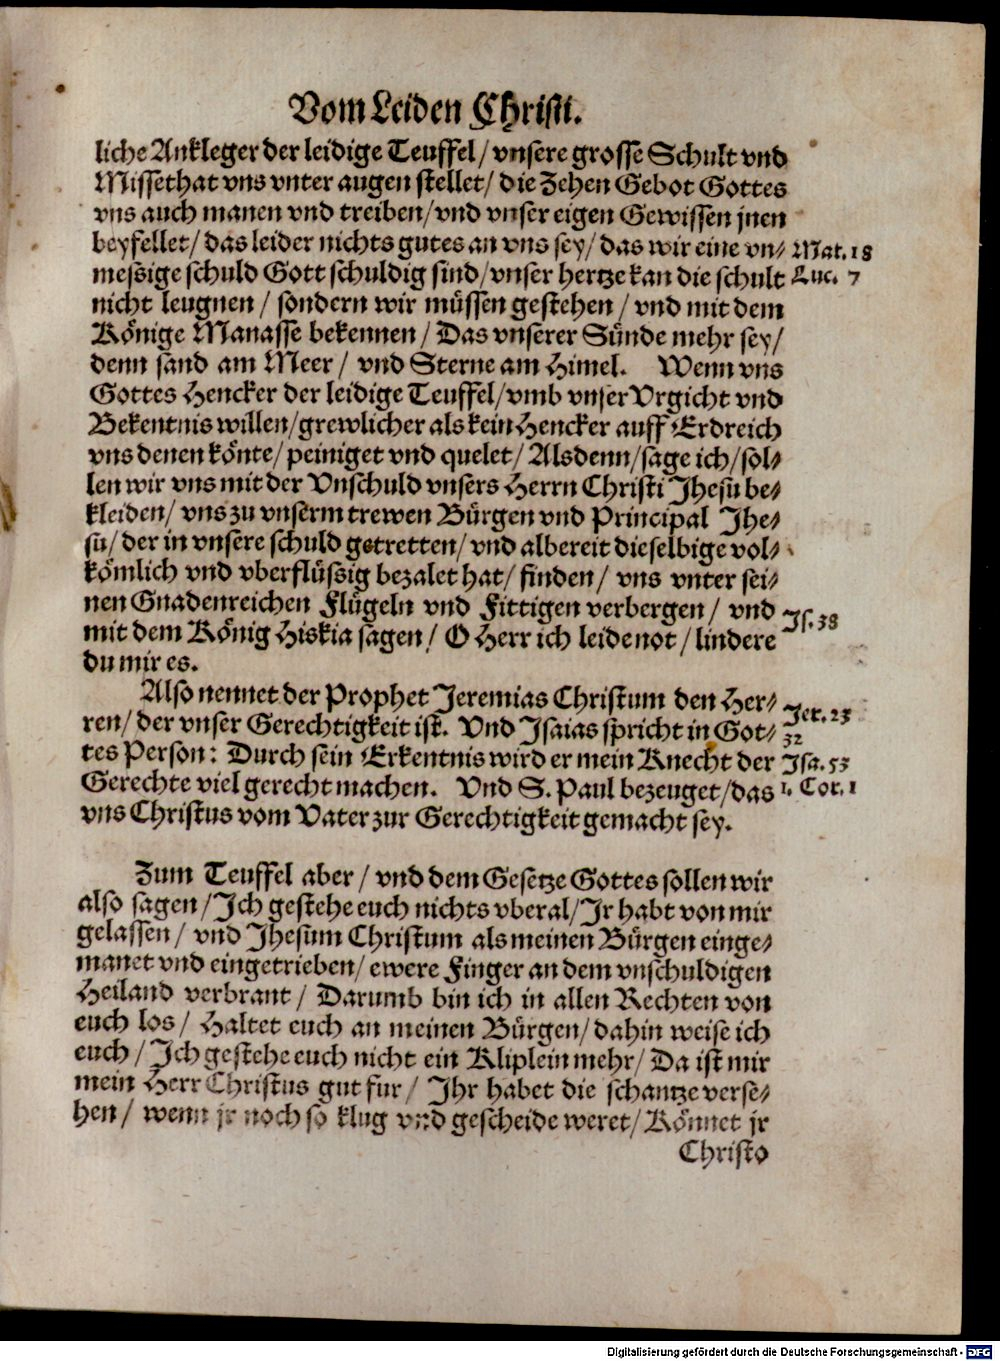 Vom Leiden Christi.
liche Ankleger der leidige Teuffel/ vnsere grosse Schult vnd
Missethat vns vnter augen stellet/ die Zehen Gebot Gottes
vns auch manen vnd treiben/ vnd vnser eigen Gewissen jnen
beyfellet/ das leider nichts gutes an vns sey/ das wir eine vn⸗ Mat. 18
meßige schuld Gott schuldig sind/ vnser hertze kan die schult Luc. 7
nicht leugnen/ sondern wir müssen gestehen/ vnd mit dem
Könige Manasse bekennen/ Das vnserer Sünde mehr sey/
denn sand am Meer/ vnd Sterne am Himel. Wenn vns
Gottes Hencker der leidige Teuffel/ vmb vnser Vrgicht vnd
Bekentnis willen/ grewlicher als kein Hencker auff Erdreich
vns denen könte/ peiniget vnd quelet/ Alsdenn/ sage ich/ sol⸗
len wir vns mit der Vnschuld vnsers Herrn Christi Jhesu be⸗
kleiden/ vns zu vnserm trewen Bürgen vnd Principal Jhe⸗
su/ der in vnsere schuld getretten/ vnd albereit dieselbige vol⸗
kömlich vnd vberflüssig bezalet hat/ finden/ vns vnter sei⸗
nen Gnadenreichen Flügeln vnd Fittigen verbergen/ vnd Js. 38
mit dem König Hiskia sagen/ O Herr ich leide not/ lindere
du mir es.
Also nennet der Prophet Jeremias Christum den Her⸗ Jer. 23
ren/ der vnser Gerechtigkeit ist. Vnd Jsaias spricht in Got⸗ 32
tes Person: Durch sein Erkentnis wird er mein Knecht der Jsa. 53
Gerechte viel gerecht machen. Vnd S. Paul bezeuget/ das 1. Cor. 1
vns Christus vom Vater zur Gerechtigkeit gemacht sey.
Zum Teuffel aber/ vnd dem Gesetze Gottes sollen wir
also sagen/ Jch gestehe euch nichts vberal/ Jr habt von mir
gelassen/ vnd Jhesum Christum als meinen Bürgen einge⸗
manet vnd eingetrieben/ ewere Finger an dem vnschuldigen
Heiland verbrant/ Darumb bin ich in allen Rechten von
euch los/ Haltet euch an meinen Bürgen/ dahin weise ich
euch/ Jch gestehe euch nicht ein Kliplein mehr/ Da ist mir
mein Herr Christus gut fur/ Jhr habet die schantze verse⸗
hen/ wenn jr noch so klug vnd gescheide weret/ Könnet jr
Christo
Digitalisierung gefördert durch die Deutsche Forschungsgemeinschaft - DFG